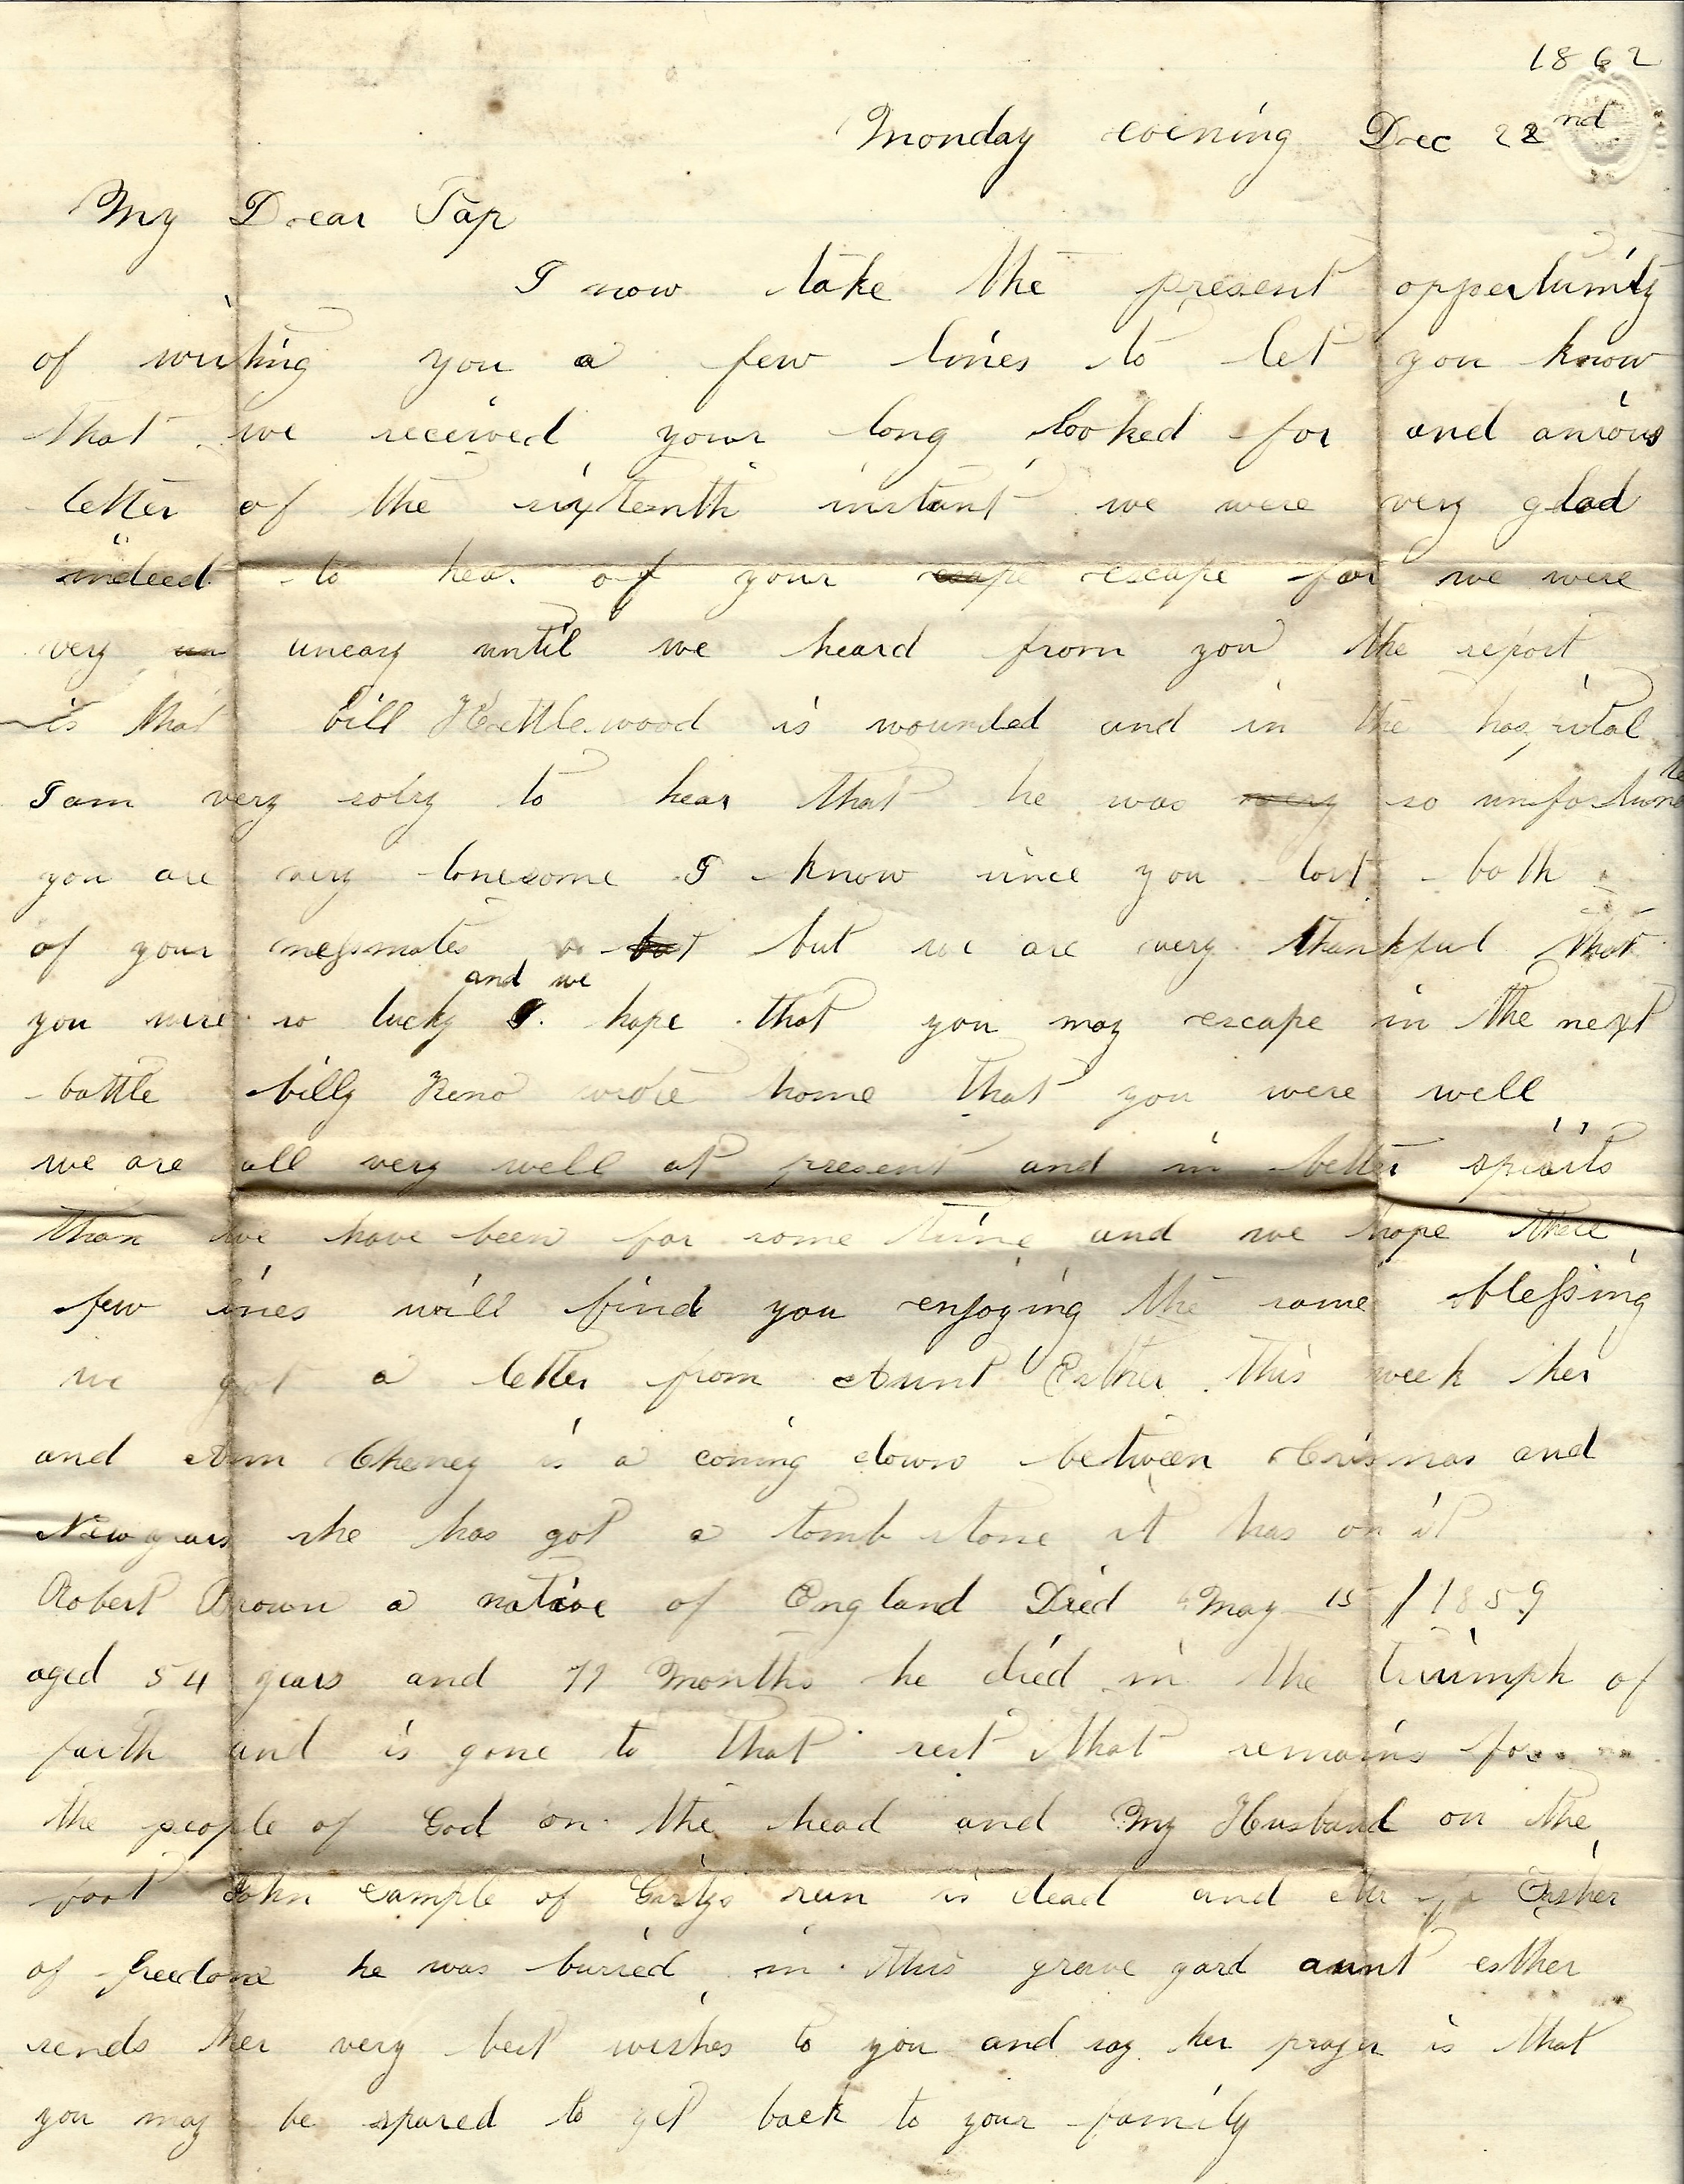 1862
Monday evening Dec 22nd
My Dear Pap
I now take the present oppertunity
of writing you a few lines to let you know
that we received your long looked for and anxious
letter of the sixteenth instant we were very glad
indeed to hear of your esape escape for we were
very un uneasy until we heard from you the report
is that bill Hettlewood is wounded and in the hospital
I am very sorry to hear that he was very so unfortunate
you are very lonesome I know since you lost both
of your messmates but but we are very thankful that
and we
you were so lucky I hope that you may escape in the next
battle billy Reno wrote home that you were well
we are all very well at present and in better spirits
than we have been for some time and we hope these
few lines will find you enjoying the same blessing
we got a letter from Aunt Esther this week her
and Ann Cheney is a coming down between Crismas and
New years she has got a tomb stone it has on it
Robert Brown a native of England Died May 15 / 1859
aged 54 years and 11 Months he died in the triumph of
faith and is gone to that rest that remains for
the people of God on the head and My Husband on the
foot John Sample of run is dead and Mr Fisher
of freedome he was buried in this grave yard aunt esther
sends her very best wishes to you and say her prayer is that
you may be spared to get back to your family